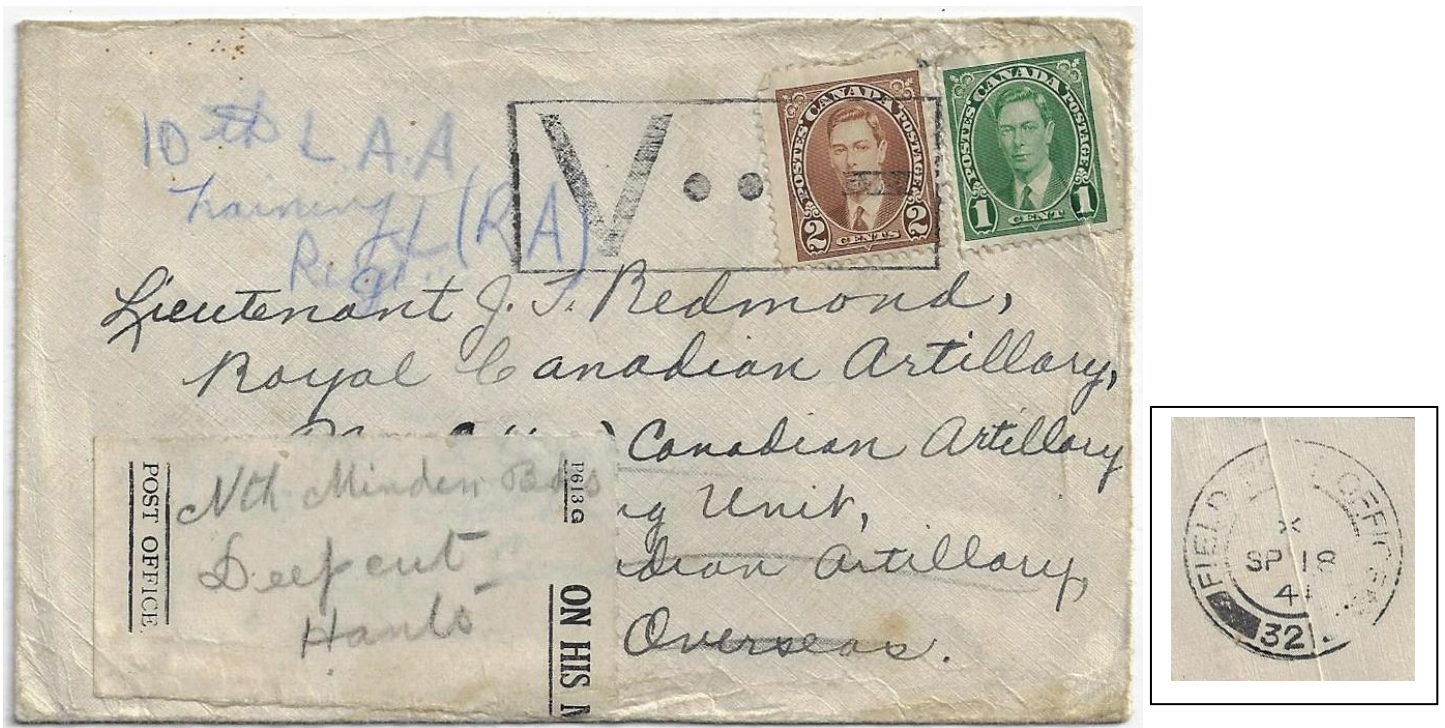 10th L.A.A.
Training
Regt (RA)
V
POSTES CANADA POSTAGE
2 CENTS 2
POSTES CANADA POSTAGE
1 CENT 1
Lieutenant J. T. Redmond,
Royal Canadian Artillary,
Canadian Artillary
g Unit,
dian Artillary,
Overseas.
POST OFFICE
Nth Minden Bks
Deepcut
Hants
P613G
ON HIS M
FIELD OFFICE
X
SP 18
41
32